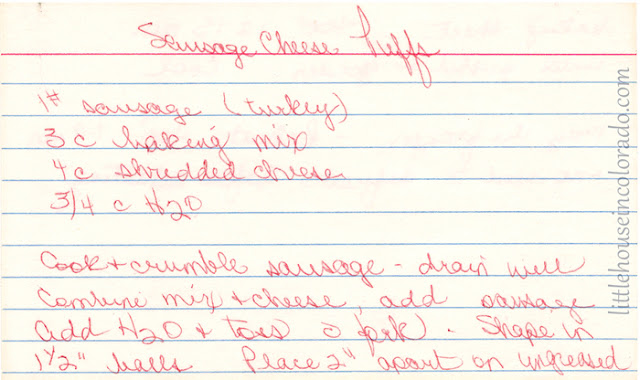 Sausage Cheese Puffs
1# sausage (turkey)
3 c baking mix
4 c shredded cheese
3/4 c H2O
Cook + crumble sausage - drain well
Combine mix + cheese, add sausage
add H2O + toss c̄ fork. Shape in
1 1/2" balls Place 2" apart on ungreased
littlehouseincolorado.com